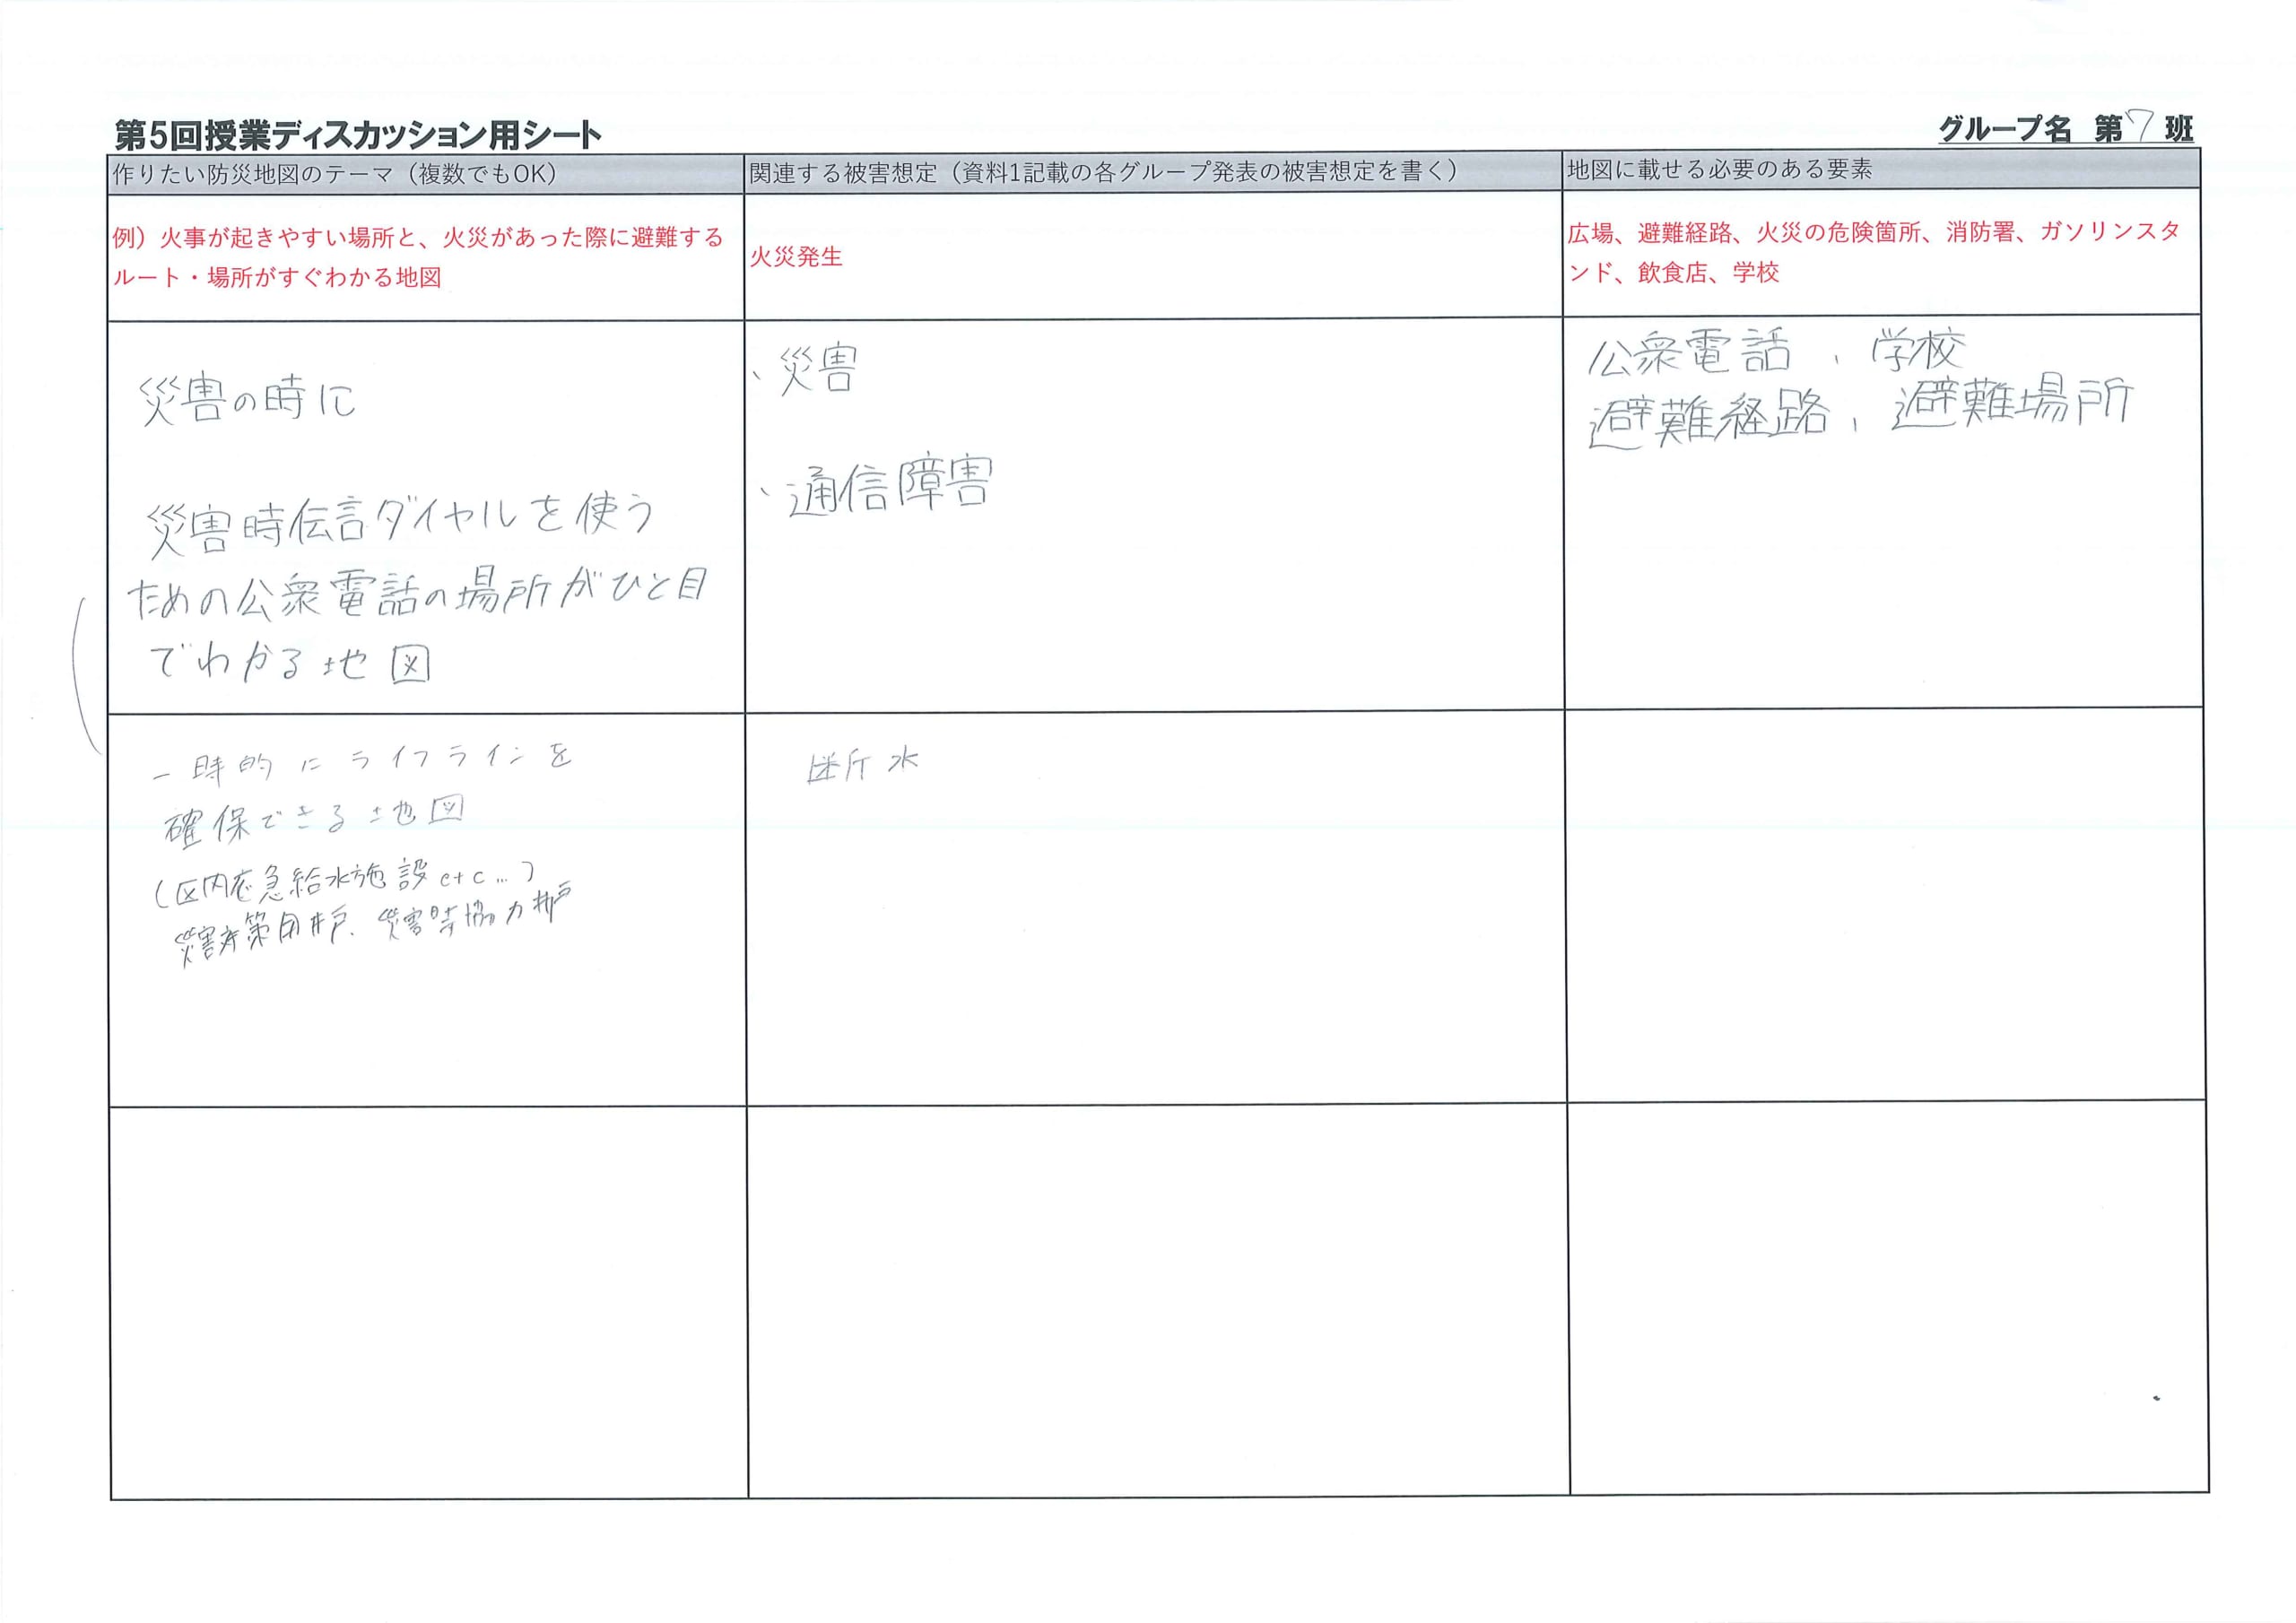 第5回授業ディスカッション用シート
グループ名 第7班
作りたい防災地図のテーマ（複数でもOK）
関連する被害想定（資料1記載の各グループ発表の被害想定を書く）
地図に載せる必要のある要素
例）火事が起きやすい場所と、火災があった際に避難する
ルート・場所がすぐわかる地図
火災発生
広場、避難経路、火災の危険箇所、消防署、ガソリンスタ
ンド、飲食店、学校
災害の時に
災害時伝言ダイヤルを使う
ための公衆電話の場所がひと目
でわかる地図
、災害
、通信障害
公衆電話、学校
避難経路、避難場所
一時的にライフラインを
確保できる地図
(区内応急給水施設etc...)
災害対策用井戸、災害時協力井戸
断水